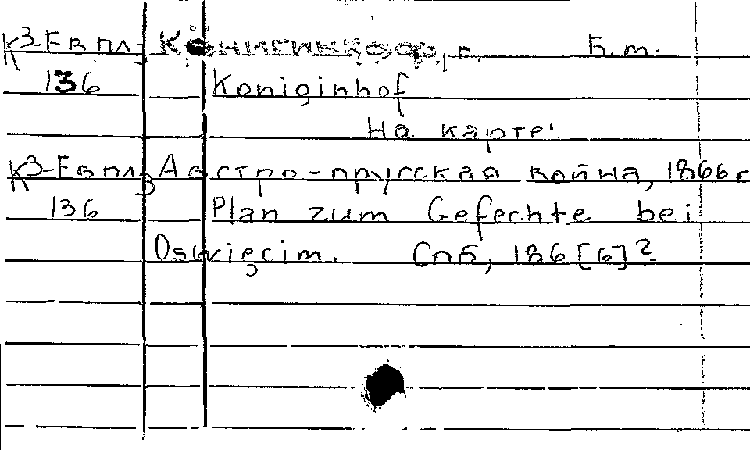 К3-Евпл. Кёнигинкгоф, г. Б.т.
136 Koniginhof
На карте:
К3-Евпл3 Австро-прусская война, 1866 г
136 Plan zum Gefechte bei
Oswięcim. Спб, 186[6]?